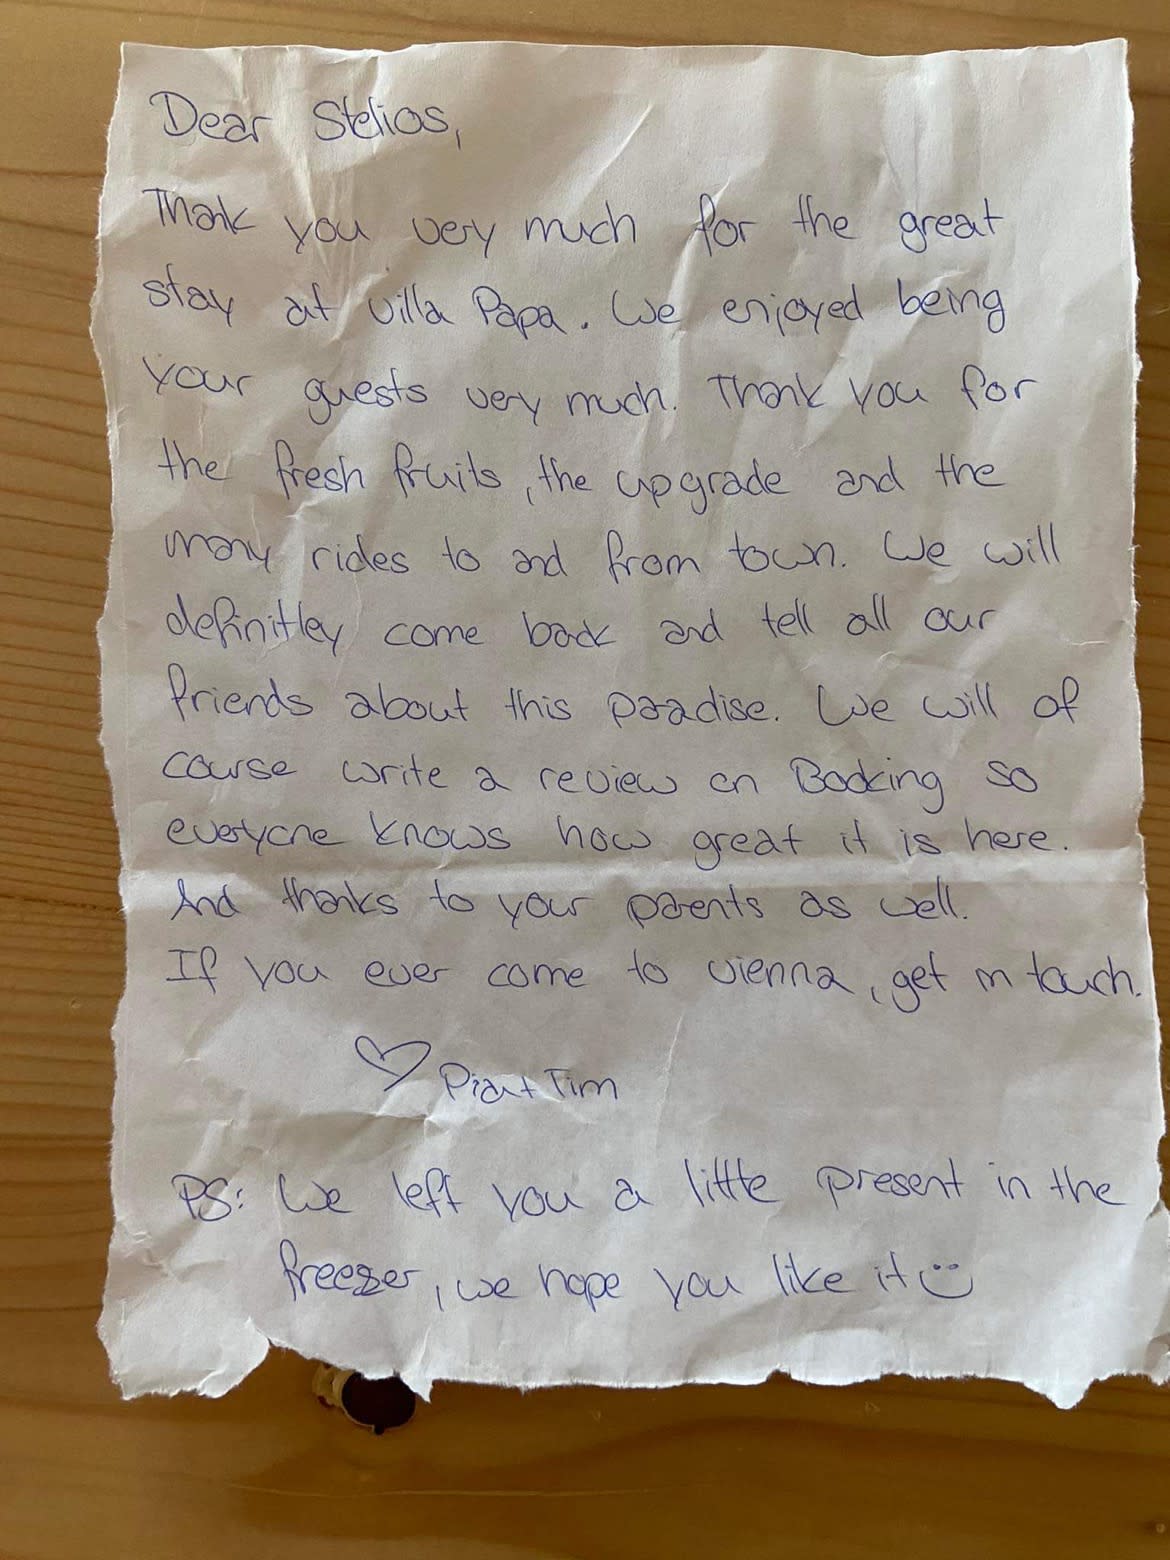 Dear Stelios,
Thank you very much for the great
stay at villa Papa. We enjoyed being
your guests very much. Thank you for
the fresh fruits, the upgrade and the
many rides to and from town. We will
definitley come back and tell all our
friends about this paradise. We will of
course write a review on Booking so
everyone knows how great it is here.
And thanks to your parents as well.
If you ever come to vienna, get in touch.
♡ Pia + Tim
PS: We left you a little present in the
freezer, we hope you like it ☺